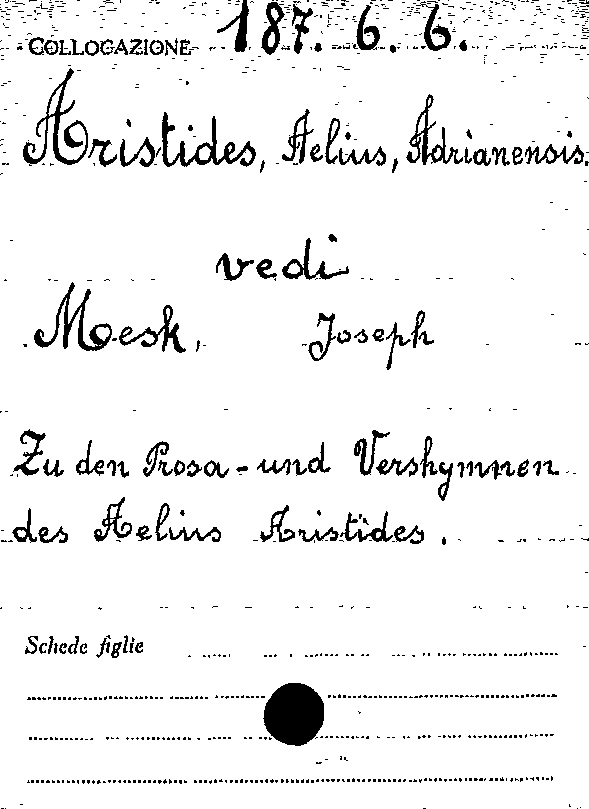 COLLOCAZIONE 187. 6. 6.
Aristides, Aelius, Adrianensis.
vedi
Mesk, Joseph
Zu den Prosa- und Vershymnen
des Aelius Aristides.
Schede figlie